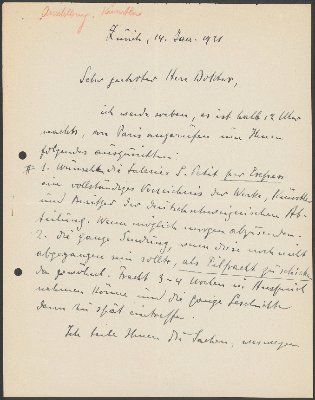 Ausstellung. Künstler
Zürich, 14. Jan. 1931
Sehr geehrter Herr Doktor,
ich werde soeben, es ist halb 12 Uhr
nachts, von Paris angerufen um Ihnen
folgendes auszurichten.
1. Wünscht die Galerie G. Petit per Express
eine vollständiges Verzeichnis der Werke, Künstler
und Besitzer der deutschschweizerischen Ab-
teilung. Wenn möglich morgen abzusenden.
2. die ganze Sendung, wenn diese noch nicht
abgegangen sein sollte, als Eilfracht zu schicken
da gewöhnl. Fracht 3-4 Wochen in Anspruch
nehmen könne und die ganze Geschichte
dann zu spät eintreffe.
Ich teile Ihnen die Sachen,